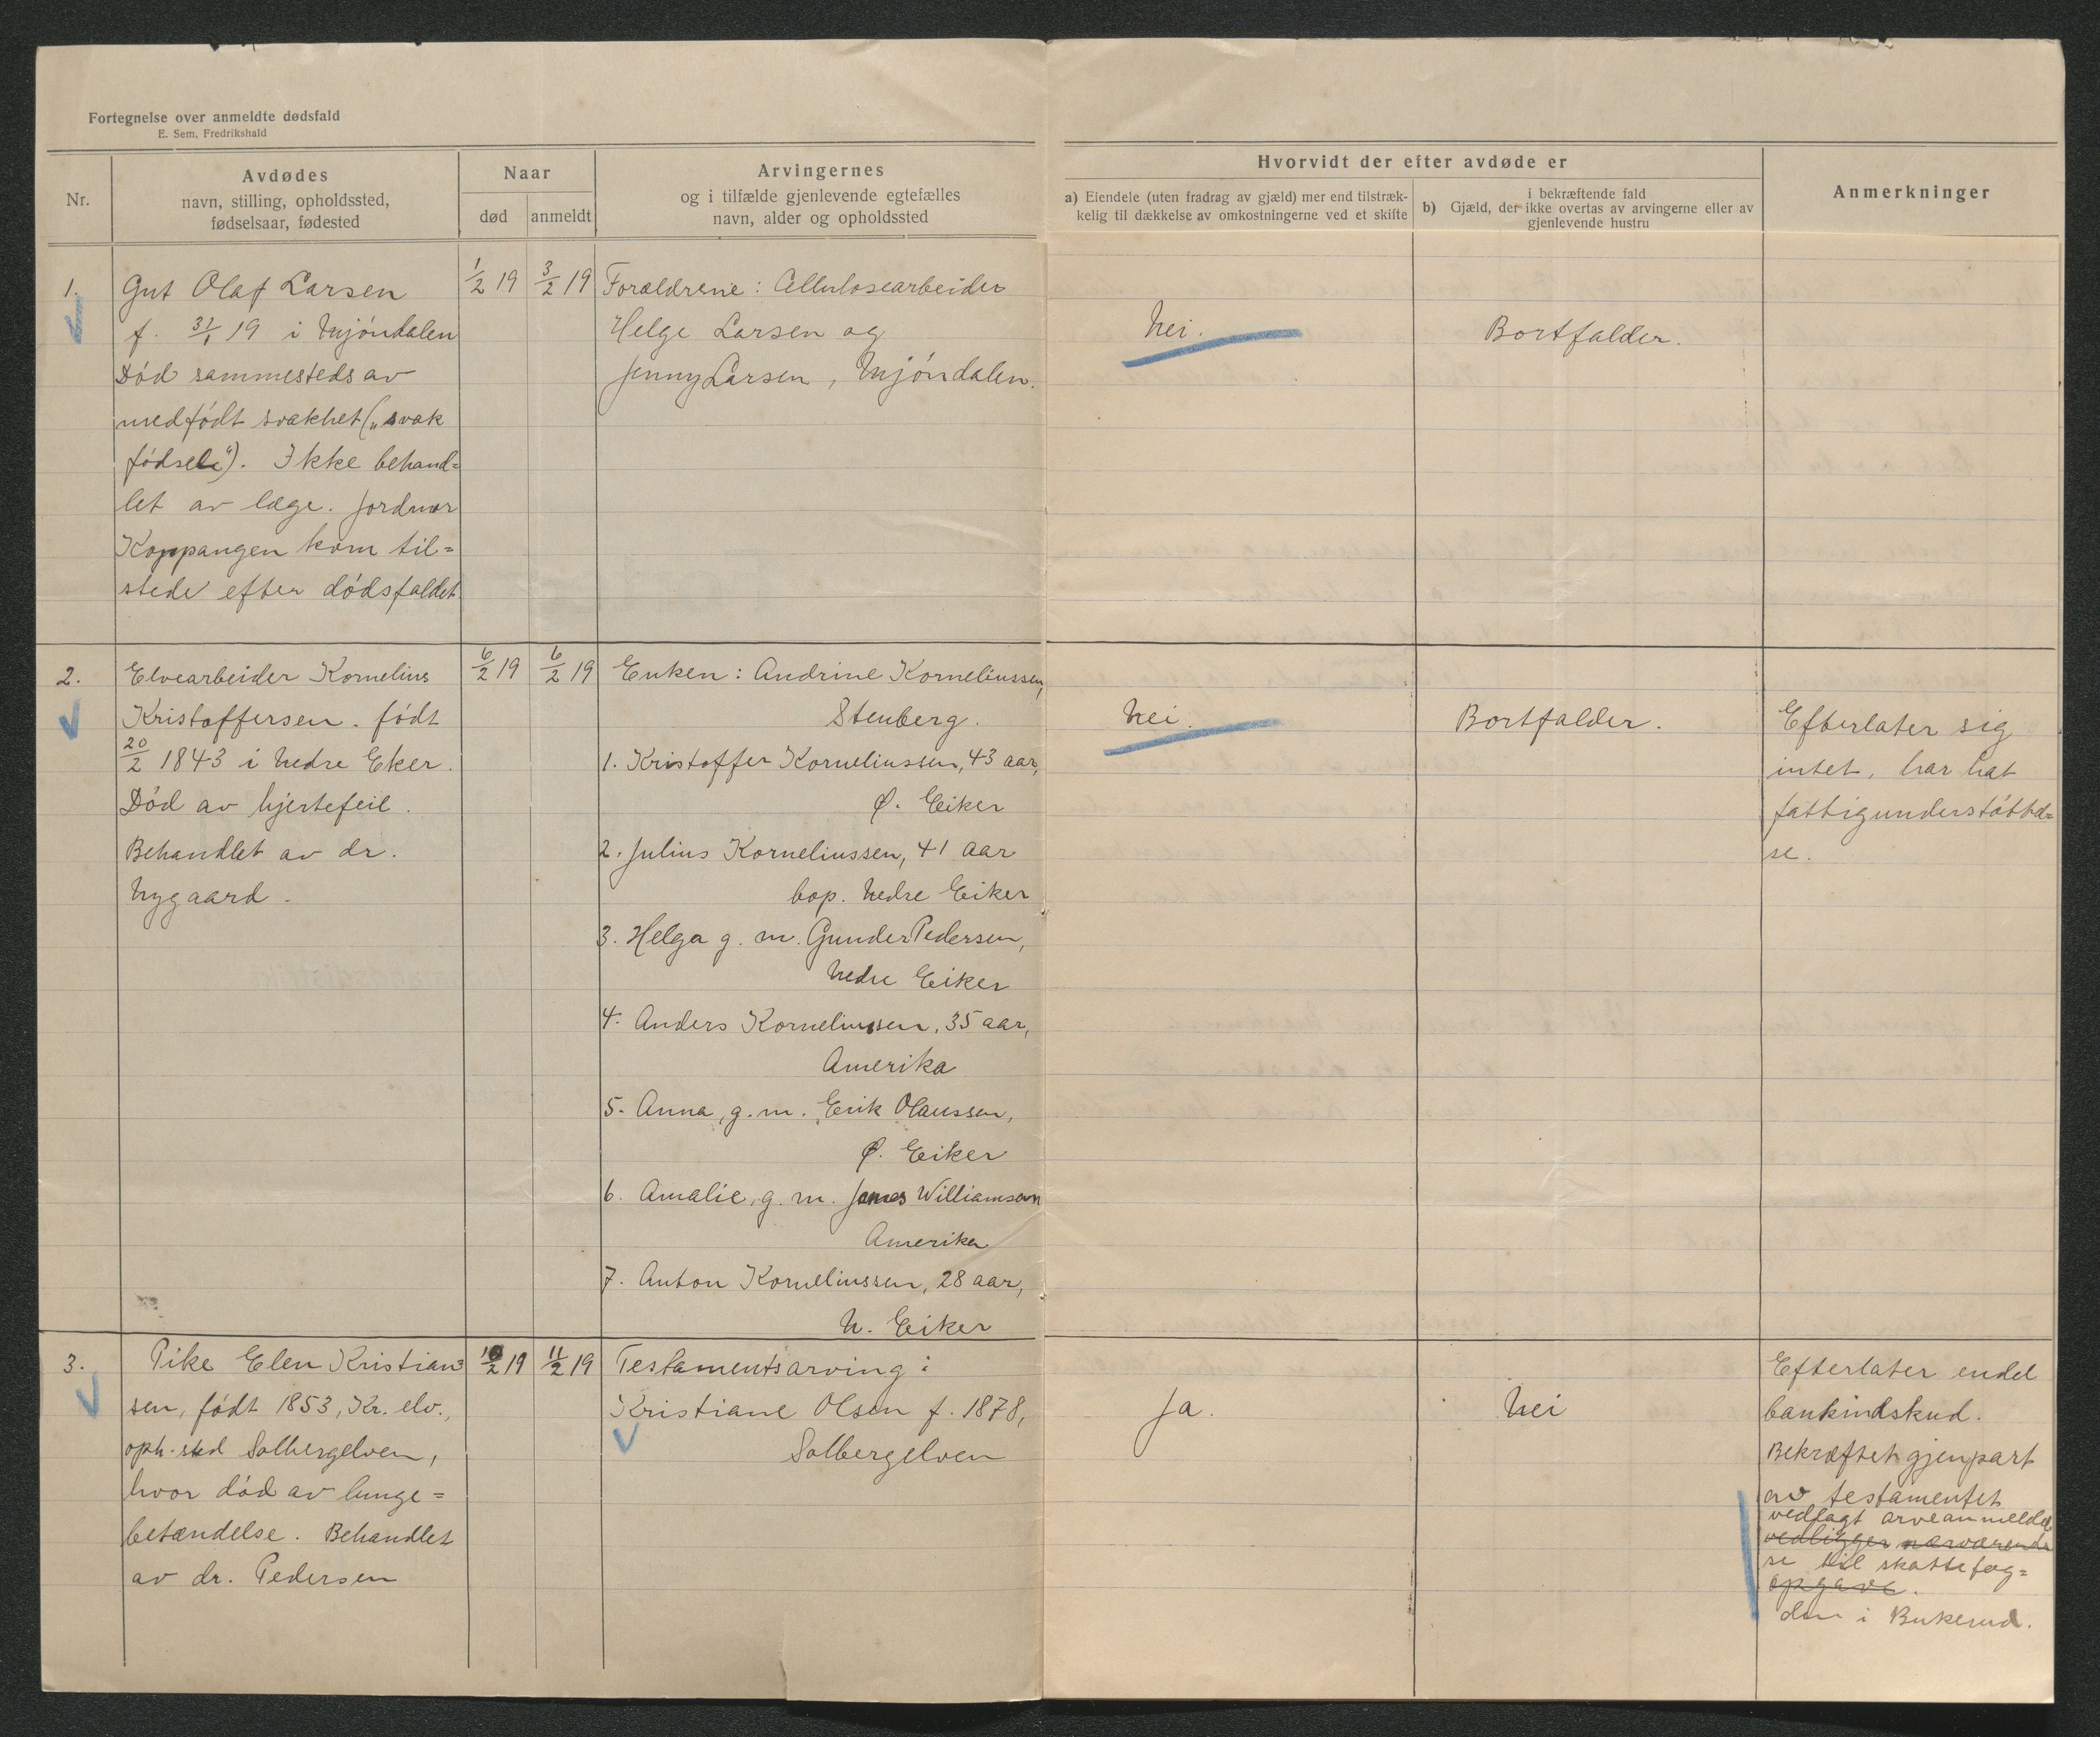 Fortegnelse over anmeldte dødsfald
E. Sem, Fredrikshald
Nr.
Avdødes
navn, stilling, opholdssted,
fødselsaar, fødested
Naar
død
anmeldt
Arvingernes
og i tilfælde gjenlevende egtefælles
navn, alder og opholdssted
Hvorvidt der efter avdøde er
a) Eiendele (uten fradrag av gjæld) mer end tilstræk-
kelig til dækkelse av omkostningerne ved et skifte
i bekræftende fald
b) Gjæld, der ikke overtas av arvingerne eller av
gjenlevende hustru
Anmerkninger
1.
Gut Olaf Larsen
f. 31/1 19 i Mjøndalen
Død sammesteds av
medfødt svakhet („svak
fødsel“). Ikke behand=
let av læge. Jordmor
Koppangen kom til=
stede efter dødsfaldet.
1/2 19
3/2 19
Forældrene: Cellulosearbeider
Helge Larsen og
Jenny Larsen, Mjøndalen.
Nei.
Bortfalder.
2.
Elvearbeider Kornelius
Kristoffersen. født
20/2 1843 i Nedre Eker.
Død av hjertefeil.
Behandlet av dr.
Nygaard.
6/2 19
6/2 19
Enken: Andrine Korneliussen,
Stenberg.
1. Kristoffer Korneliussen, 43 aar,
Ø. Eiker
2. Julius Korneliussen, 41 aar
bop. Nedre Eiker
3. Helga g. m. Gunder Pedersen,
Nedre Eiker
4. Anders Korneliussen, 35 aar,
Amerika
5. Anna, g. m. Erik Olaussen,
Ø. Eiker
6. Amalie, g. m. James Williamson
Amerika
7. Anton Korneliussen, 28 aar,
N. Eiker
Nei.
Bortfalder.
Efterlater sig
intet, har hat
fattigunderstøttel=
se.
3.
Pike Elen Kristian=
sen, født 1853, Kr. elv.,
oph. sted Solbergelven,
hvor død av lunge=
betændelse. Behandlet
av dr. Pedersen
10/2 19
11/2 19
Testamentsarving:
Kristiane Olsen f. 1878,
Solbergelven
Ja.
Nei
Efterlater endel
bankindskud.
Bekræftet gjenpart
av testamentet
vedlagt arveanmeldel
vedligger nærværende
se til skattefog=
opgave.
den i Buskerud.